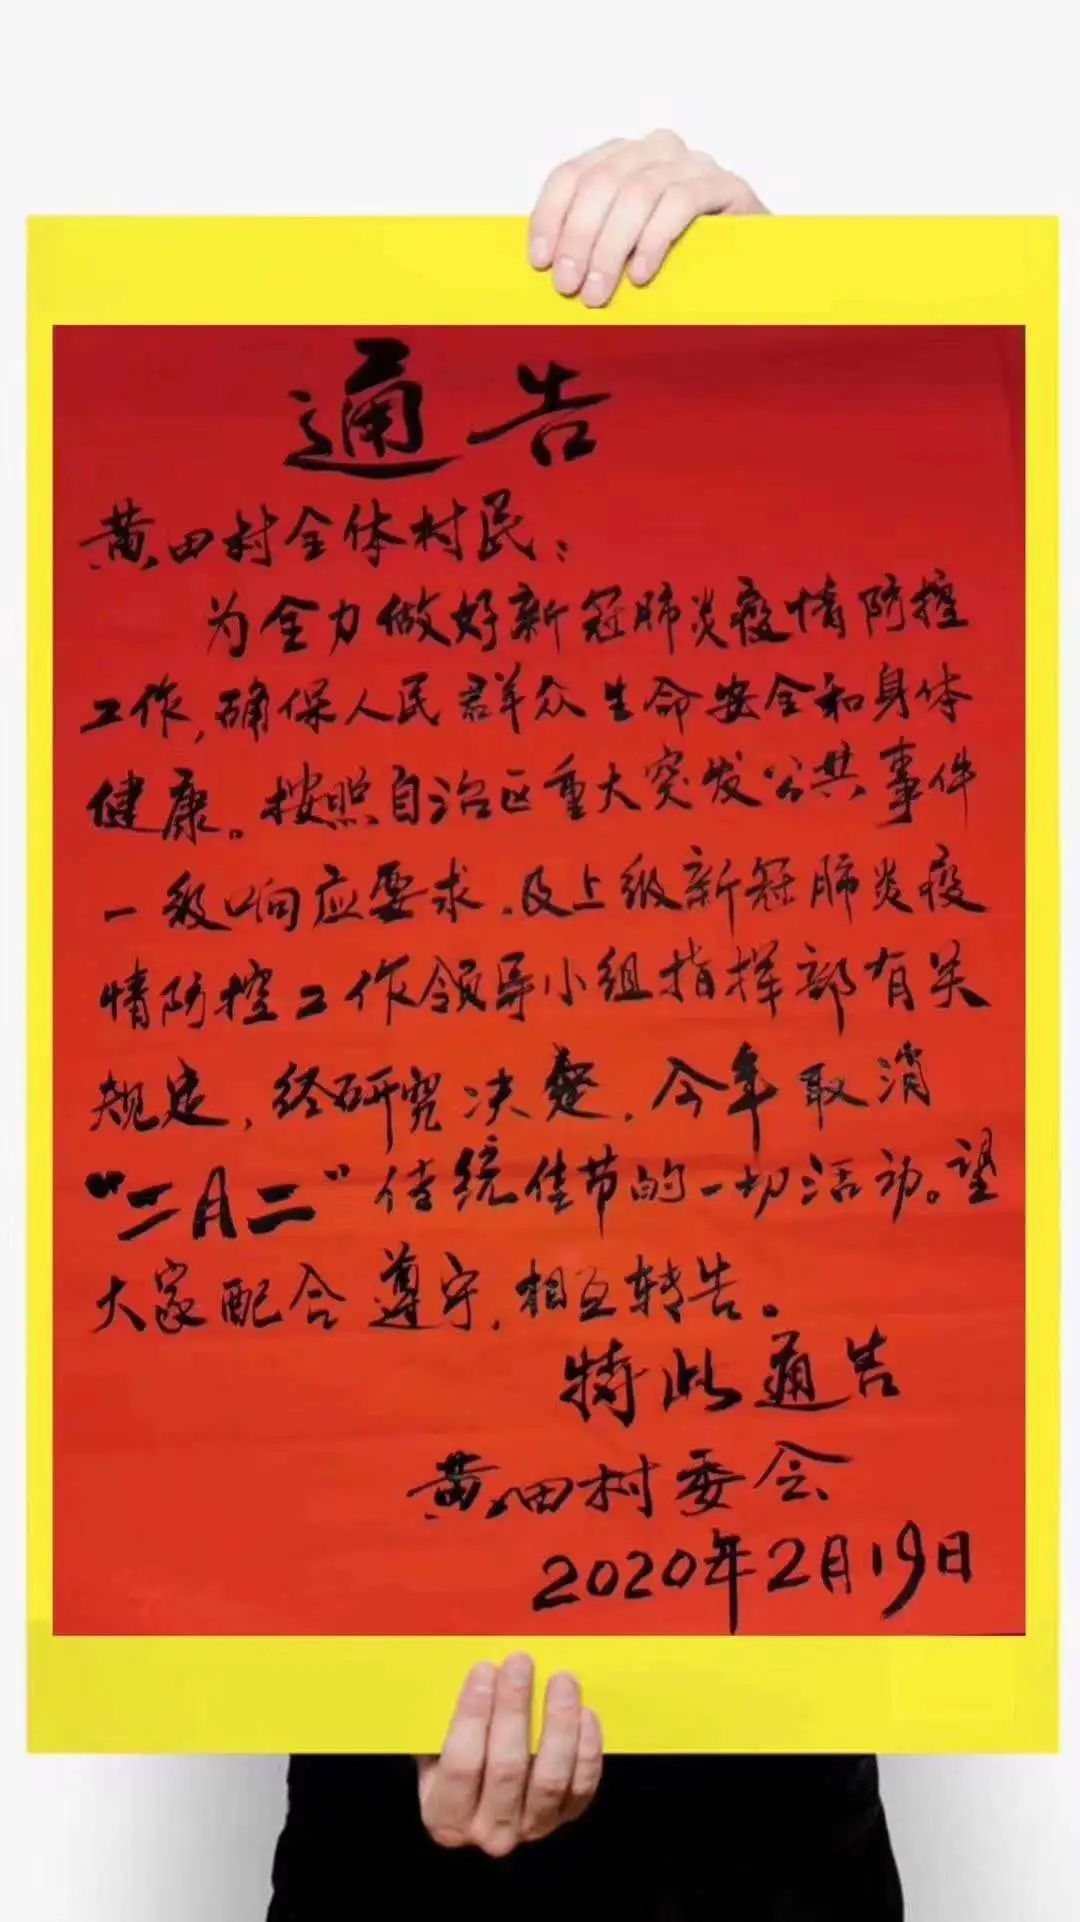 通告
黄田村全体村民：
为全力做好新冠肺炎疫情防控
工作，确保人民群众生命安全和身体
健康。按照自治区重大突发公共事件
一级响应要求，及上级新冠肺炎疫
情防控工作领导小组指挥部有关
规定，经研究决定，今年取消
“二月二”传统佳节的一切活动。望
大家配合遵守，相互转告。
特此通告
黄田村委会
2020年2月19日